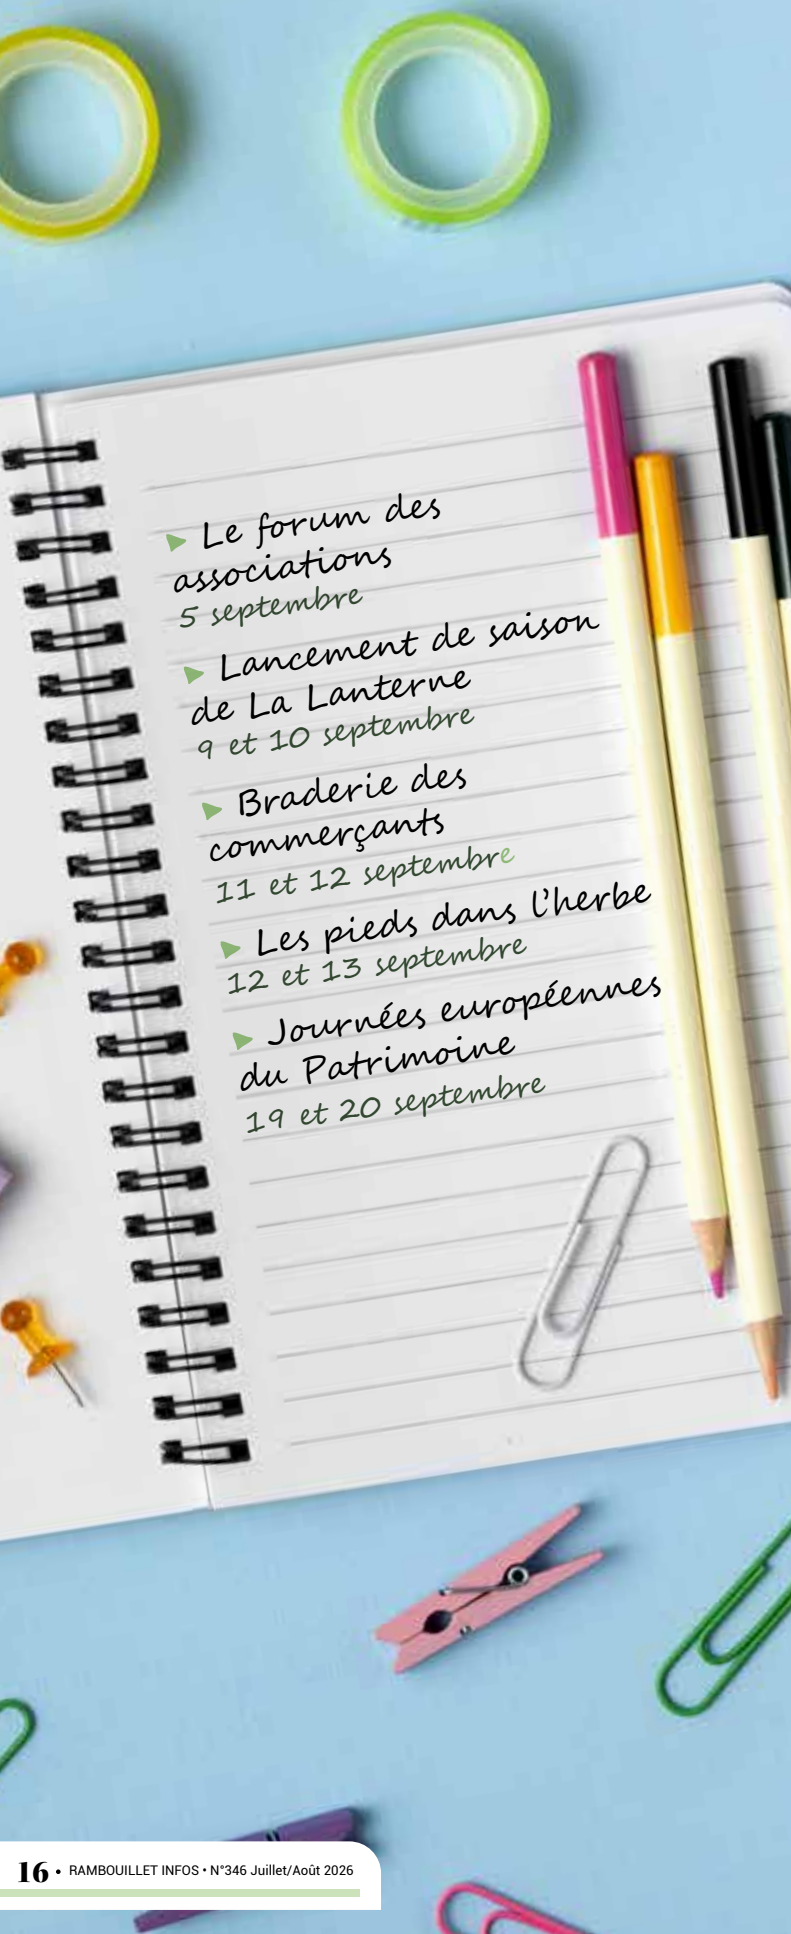 ► Le forum des
associations
5 septembre
► Lancement de saison
de La Lanterne
9 et 10 septembre
► Braderie des
commerçants
11 et 12 septembre
► Les pieds dans l'herbe
12 et 13 septembre
► Journées européennes
du Patrimoine
19 et 20 septembre
16 • RAMBOUILLET INFOS • N°346 Juillet/Août 2026